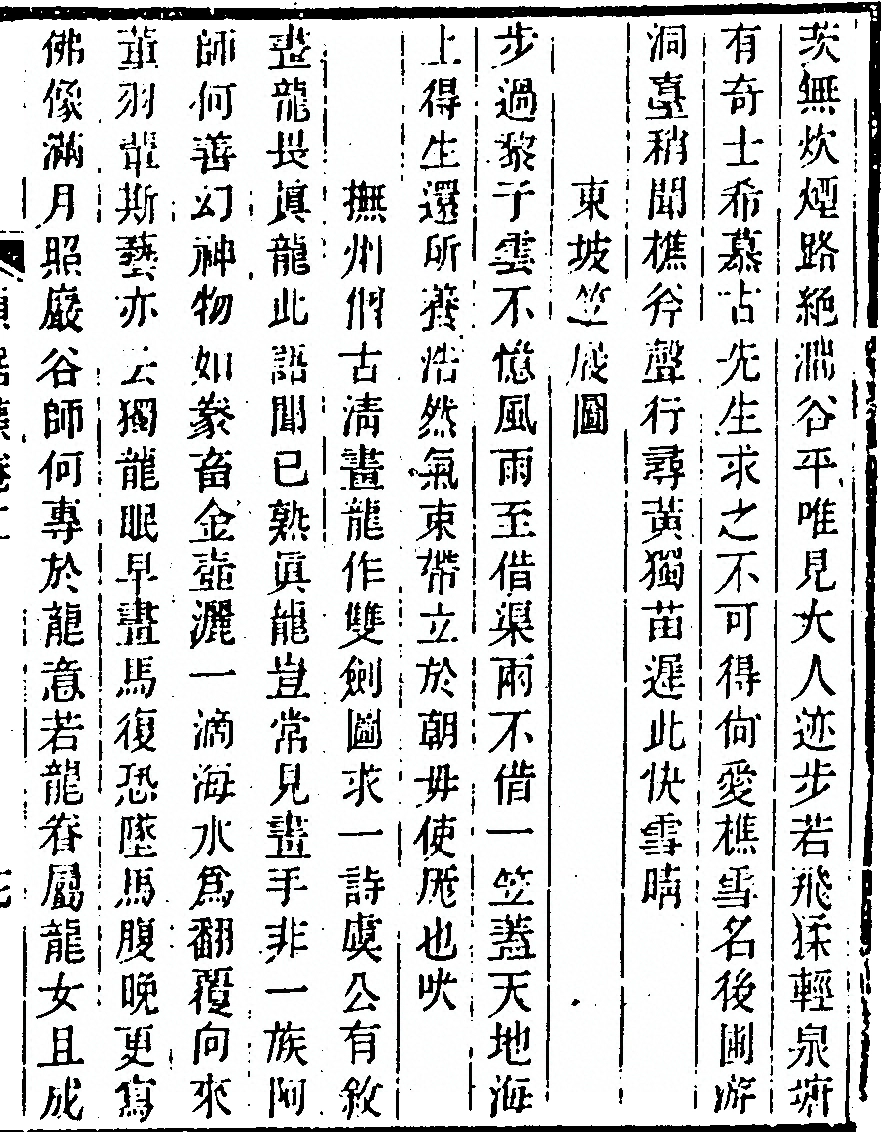 茨無炊煙路絶澗谷平唯見大人迹步若飛猱輕泉塘
有奇士希慕古先生求之不可得向愛樵雪名後圃游
洞臺稍聞樵斧聲行尋黃獨苗遲此快雪晴
東坡笠屐圖
步過黎子雲不憶風雨至借渠兩不借一笠蓋天地海
上得生還所養浩然氣束帶立於朝毋使尨也吠
撫州僧古淸畫龍作雙劍圖求一詩虞公有敘
畫龍長眞龍此語聞已熟眞龍豈常見畫手非一族阿
師何善幻神物如豢畜金壺灑一滴海水爲翻覆向來
董羽輩斯藝亦云獨龍眠早畫馬復恐墜馬腹晚更寫
佛像滿月照巖谷師何專於龍意若龍眷屬龍女且成